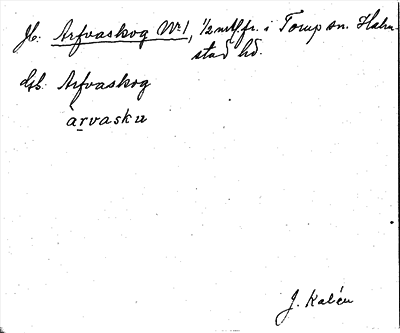 Jb: Arfvaskog No 1, 1/2 mtl fr. i Torup sn. Halm-
stad hd.
dsb. Arfvaskog
àrvasku
J. Kalén